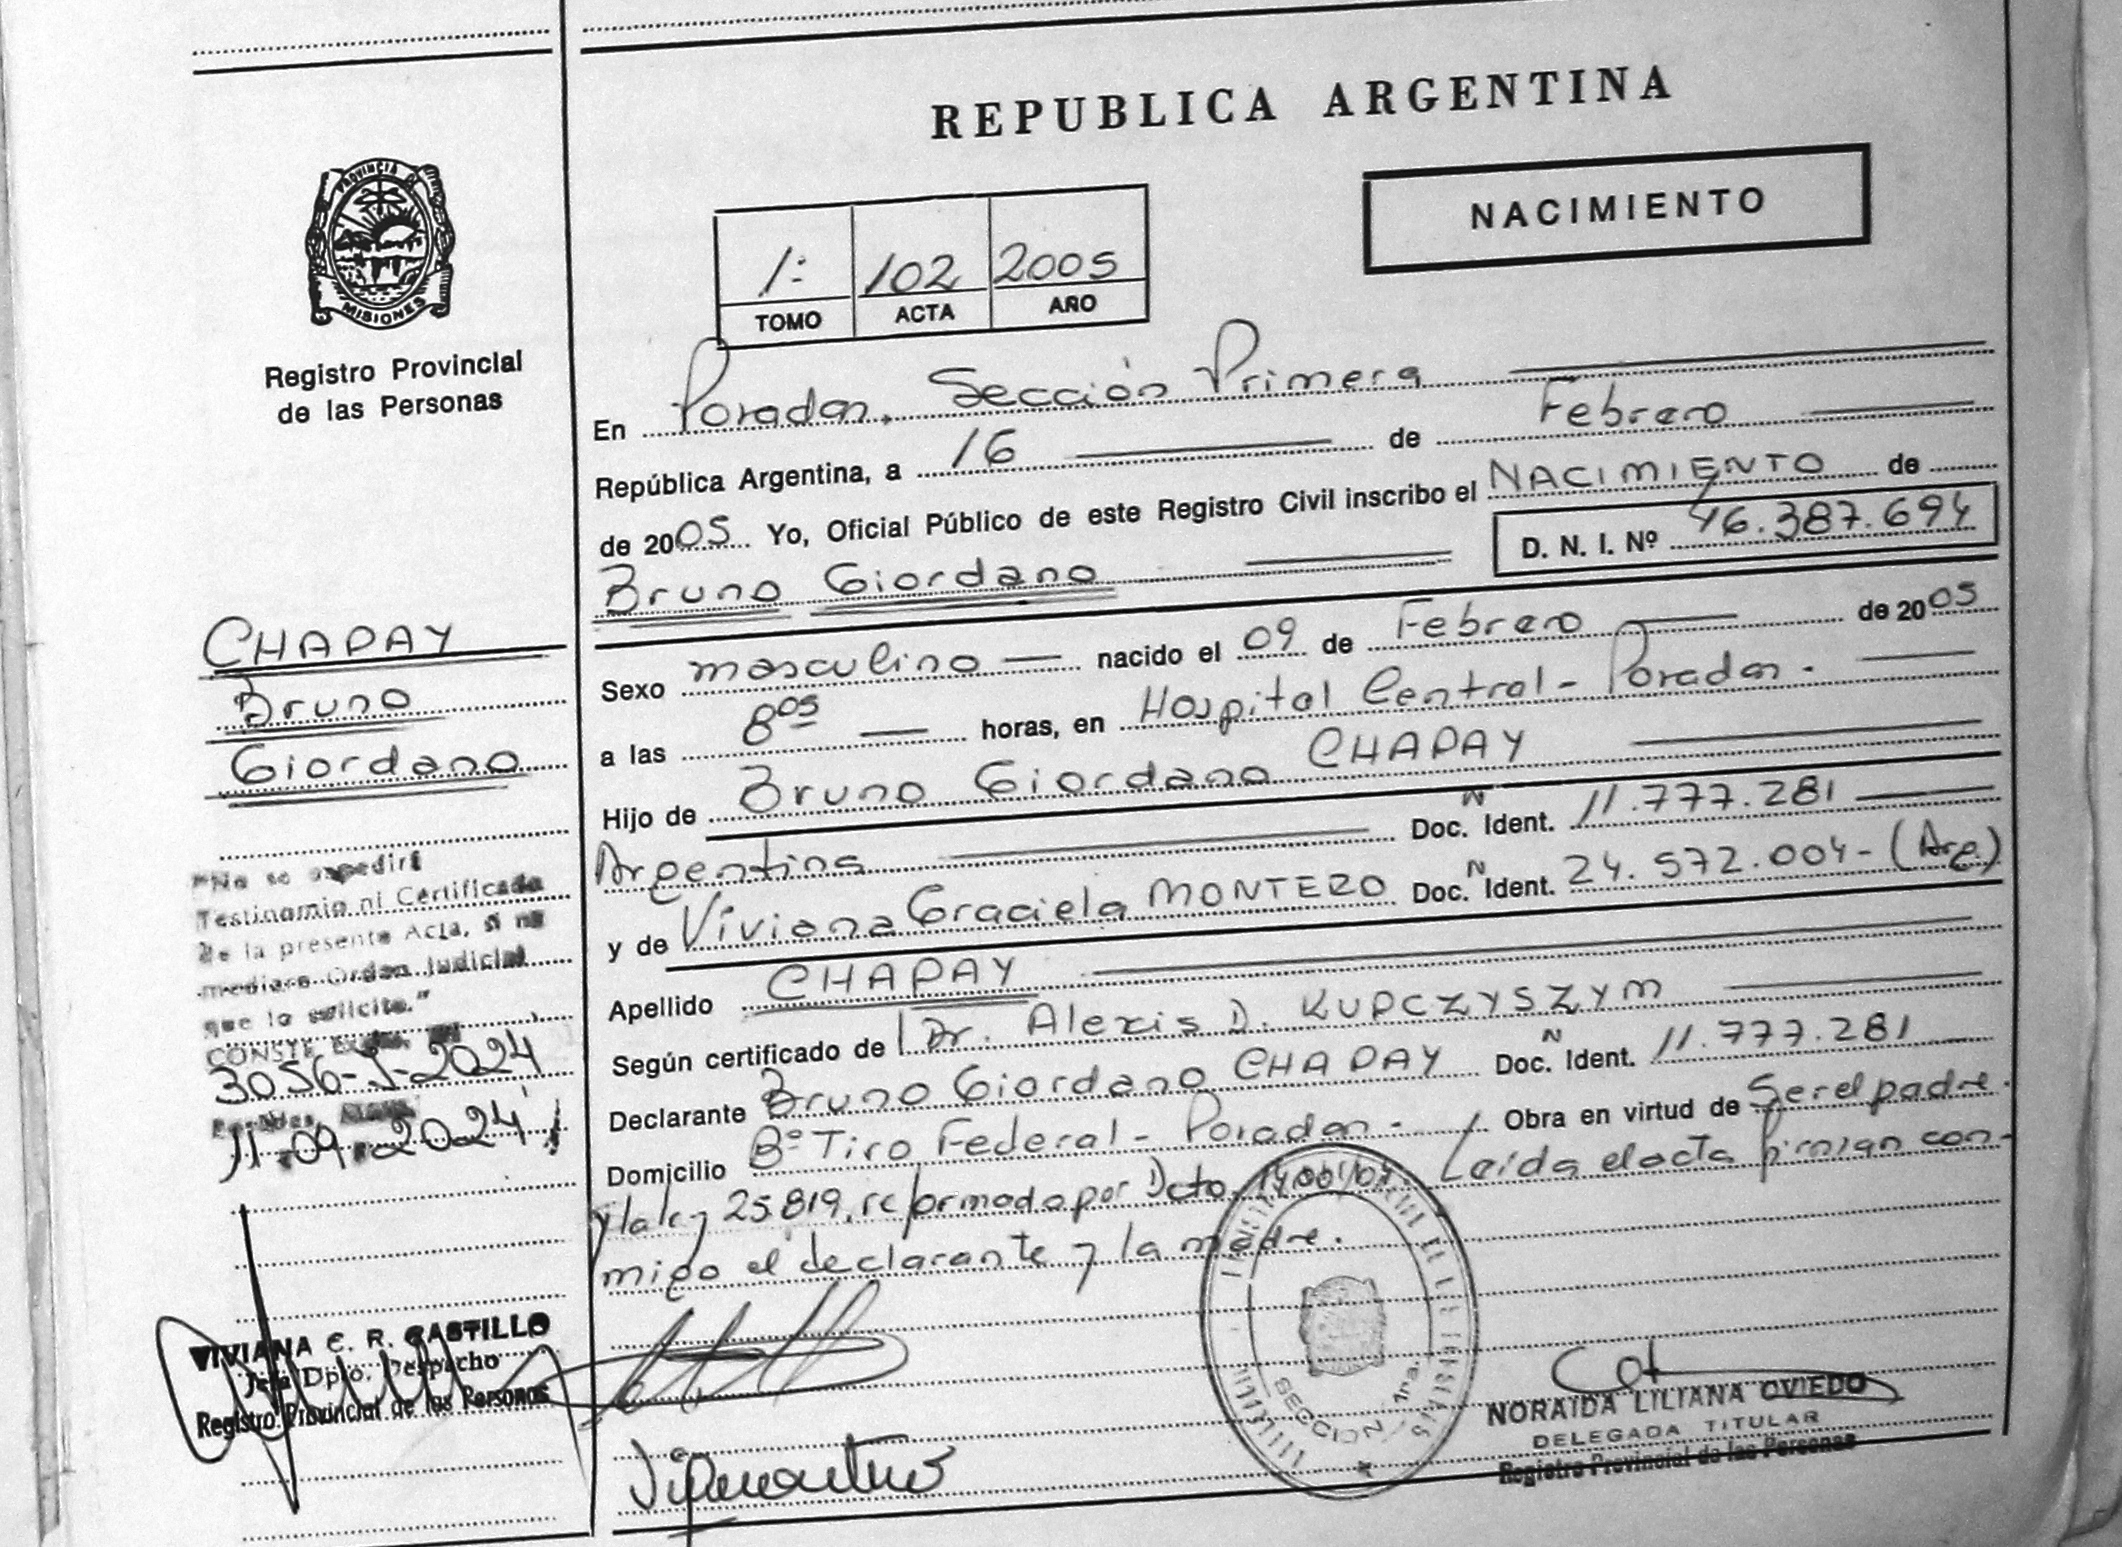 REPUBLICA ARGENTINA
NACIMIENTO
1: 102 2005
TOMO ACTA AÑO
PROVINCIA DE
MISIONES
Registro Provincial
de las Personas
En Posadas, Sección Primera
República Argentina, a 16 de Febrero
de 2005 Yo, Oficial Público de este Registro Civil inscribo el NACIMIENTO de
D. N. I. Nº 46.387.694
Bruno Giordano
Sexo masculino nacido el 09 de Febrero de 2005
a las 8 05 horas, en Hospital Central - Posadas.
Hijo de Bruno Giordano CHAPAY
Argentina Doc. N Ident. 11.777.281
y de Viviana Graciela MONTERO Doc. N Ident. 24.572.004 - (Arg)
Apellido CHAPAY
Según certificado de Dr. Alexis D. KUPCZYSZYM
Declarante Bruno Giordano CHAPAY Doc. N Ident. 11.777.281
Domicilio Bº Tiro Federal - Posadas - Obra en virtud de Ser el padre.
y la ley 25.819, reformada por Dcto. Leída el acta firman con-
migo el declarante y la madre.
CHAPAY
Bruno
Giordano
"No se expedirá
Testimonio ni Certificado
de la presente Acta, si no
mediare Orden Judicial
que lo solicite."
CONSTE
3056-J-2024
11.09.2024
VIVIANA C. R. CASTILLO
Jefa Dpto. Despacho
Registro Provincial de las Personas
SECCION 1ra.
NORAIDA LILIANA OVIEDO
DELEGADA TITULAR
Registro Provincial de las Personas